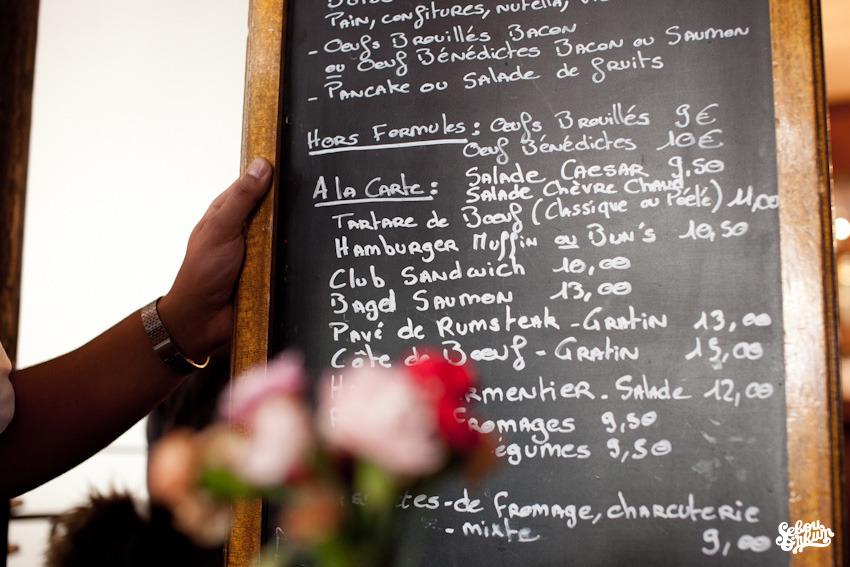 Pain, confitures, nutella,
- Oeufs Brouillés Bacon
ou Oeuf Bénédictes Bacon ou Saumon
- Pancake ou Salade de fruits
Hors Formules : Oeufs Brouillés 9€
Oeuf Bénédictes 10€
A la Carte : Salade Caesar 9,50
Salade Chèvre Chaud
Tartare de Bœuf (Classique ou Pôélé) 11,00
Hamburger Muffin ou Bun's 10,50
Club Sandwich 10,00
Bagel Saumon 13,00
Pavé de Rumsteak - Gratin 13,00
Côte de Bœuf - Gratin 15,00
rmentier. Salade 12,00
Fromages 9,50
égumes 9,50
ttes - de fromage, charcuterie
- mixte 9,00
Sebou